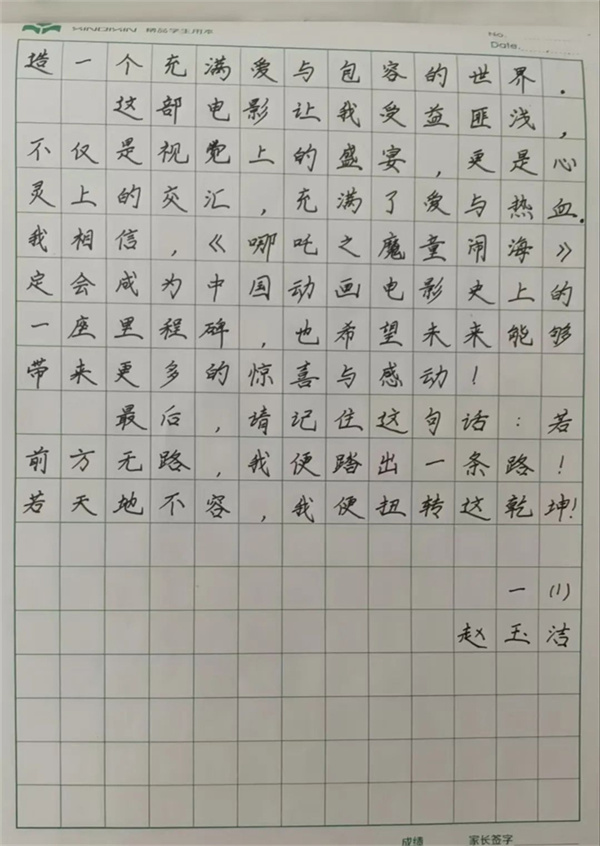 MINGMIN 精品学生用本
No.
Date.
造一个充满爱与包容的世界.
这部电影让我受益匪浅,
不仅是视觉上的盛宴,更是心
灵上的交汇,充满了爱与热血.
我相信,《哪吒之魔童闹海》
定会成为中国动画电影史上的
一座里程碑,也希望未来能够
带来更多的惊喜与感动!
最后,请记住这句话:若
前方无路,我便踏出一条路!
若天地不容,我便扭转这乾坤!
一(1)
赵玉洁
成绩 家长签字